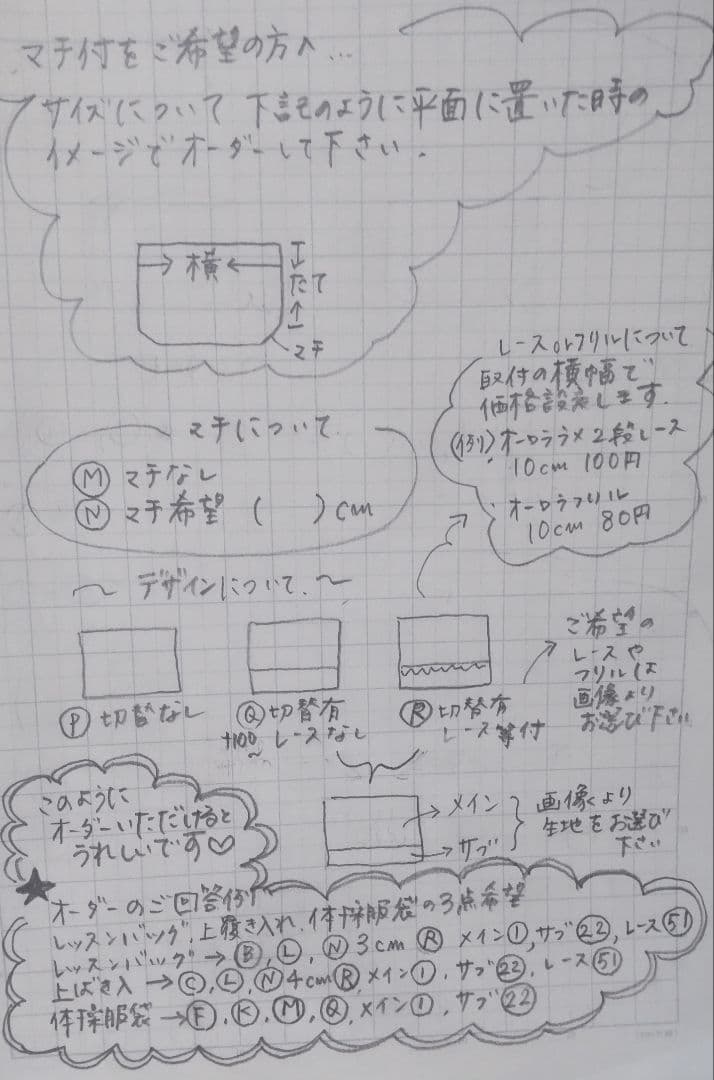 マチ付をご希望の方へ...
サイズについて 下記のように平面に置いた時の
イメージでオーダーして下さい.
横
たて
マチ
レースorフリルについて
取付の横幅で
価格設定します.
(例) オーロララメ2段レース
10cm 100円
オーロラフリル
10cm 80円
マチについて
Ⓜ マチなし
Ⓝ マチ希望 (    )cm
〜 デザインについて. 〜
Ⓟ切替なし
Ⓠ切替有
+100〜 レースなし
Ⓡ切替有
レース等付
ご希望の
レースや
フリルは
画像より
お選び下さい
メイン
サブ
画像より
生地をお選び
下さい
このように
オーダーいただけると
うれしいです♡
★
オーダーのご回答例
レッスンバッグ, 上履き入れ, 体操服袋の3点希望
レッスンバッグ→Ⓑ, Ⓛ, Ⓝ3cm Ⓡ メイン①, サブ㉒, レース�51
上ばき入→Ⓒ, Ⓛ, Ⓝ4cmⓇ, メイン①, サブ㉒, レース�51
体操服袋→Ⓕ, Ⓚ, Ⓜ, Ⓠ, メイン①, サブ㉒